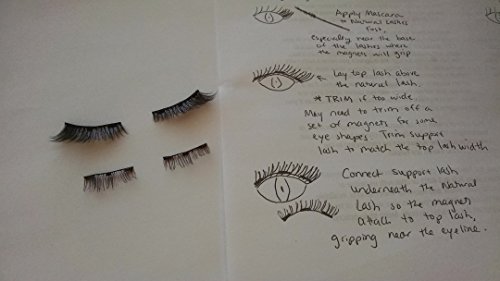 Apply Mascara
to Natural Lashes
first,
especially near the base
of the lashes where
the magnets will grip
Lay top lash above
the natural lash.
* TRIM if too wide.
May need to trim off a
set of magnets for some
eye shapes. Trim support
lash to match the top lash width
Connect support lash
underneath the natural
lash so the magnets
attach to top lash,
gripping near the eyeline.